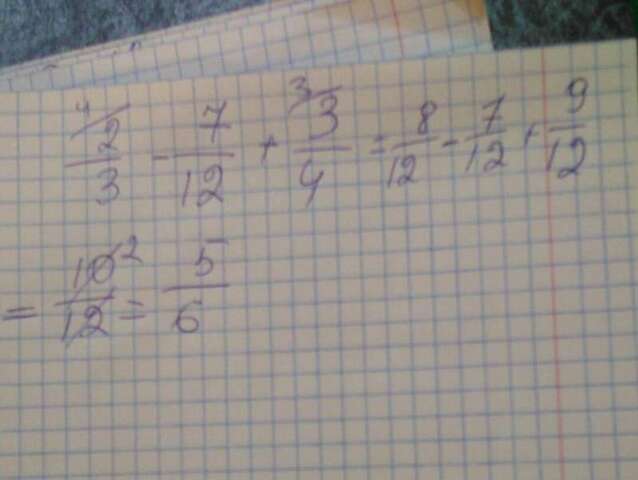 ⁴⁄ 2/3 - 7/12 + ³⁄ 3/4 = 8/12 - 7/12 + 9/12
= 10/12 ² = 5/6